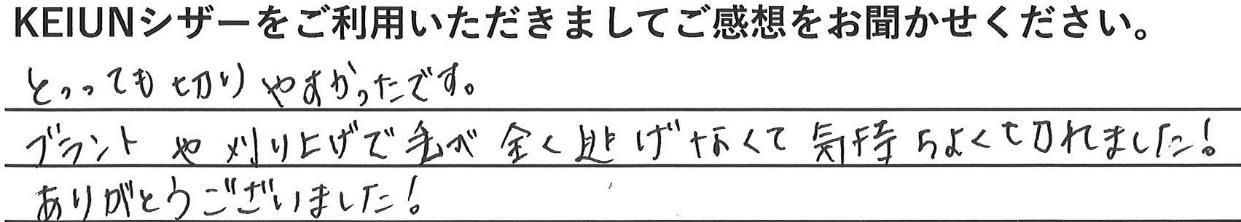 KEIUNシザーをご利用いただきましてご感想をお聞かせください。
とっっても切りやすかったです。
ブラントや刈り上げで毛が全く逃げなくて気持ちよく切れました!
ありがとうございました!